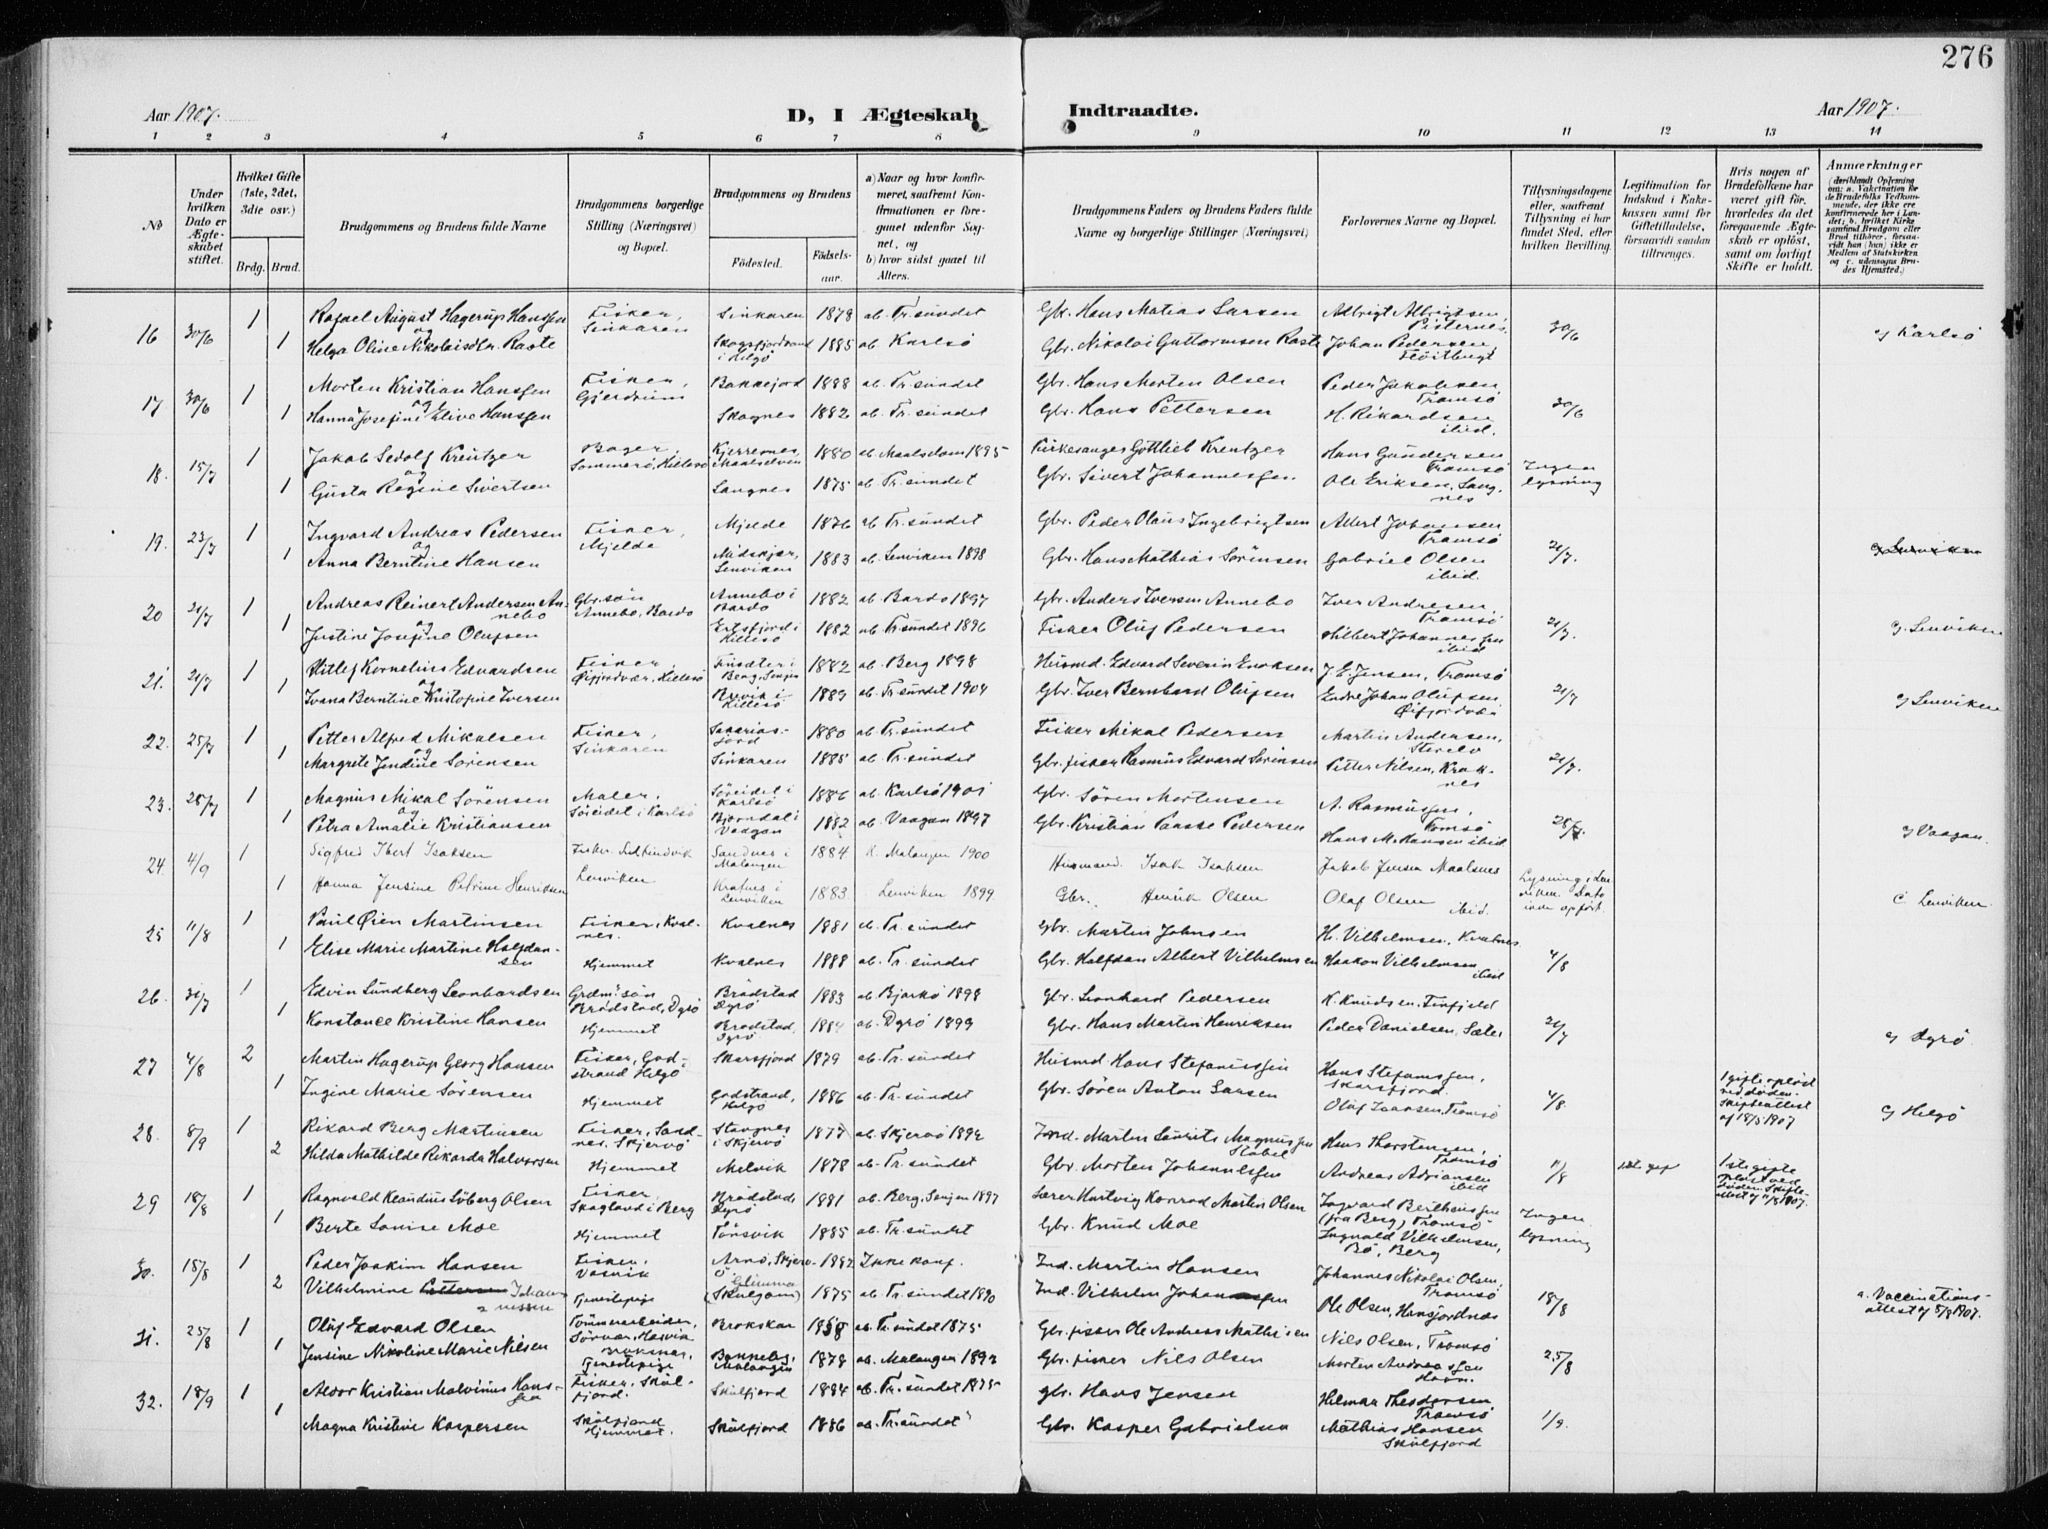 276
Aar 1907.
D, I Ægteskab Indtraadte.
Aar 1907.
1 2 3 4 5 6 7 8 9 10 11 12 13 14
No
Under hvilken Dato er Ægteskabet stiftet.
Hvilket Gifte (1ste, 2det, 3die osv.)
Brdg. Brud.
Brudgommens og Brudens fulde Navne
Brudgommens borgerlige Stilling (Næringsvei) og Bopæl.
Brudgommens og Brudens
Fødested.
Fødselsaar.
a) Naar og hvor konfirmeret, saafremt Konfirmationen er foregaaet udenfor Sognet, og
b) hvor sidst gaaet til Alters.
Brudgommens Faders og Brudens Faders fulde Navne og borgerlige Stillinger (Næringsvei)
Forlovernes Navne og Bopæl.
Tillysningsdagene eller, saafremt Tillysning ei har fundet Sted, efter hvilken Bevilling.
Legitimation for Indskud i Enkekassen samt for Giftetilladelse, forsaavidt saadan tiltrænges.
Hvis nogen af Brudefolkene har været gift før, hvorledes da det foregaaende Ægteskab er opløst, samt om lovligt Skifte er holdt.
Anmærkninger
(deriblandt Oplysning om: a. Vakcination for de Brudefolks Vedkommende, der ikke ere konfirmerede her i Landet; b. hvilket Kirkesamfund Brudgom eller Brud tilhører, forsaavidt han (hun) ikke er Medlem af Statskirken og c. udensogns Brudes Hjemsted.)
16 30/6 1 Rafael August Hagerup Hanssen Fisker, Sinkaren Sinkaren 1878 ab. Tr.sundet Gbr. Hans Matias Larsen Albrigt Albrigtsen, 30/6 c) Karlsø
og
1 Helga Oline Nikolaisdtr. Raste i Helgø 1885 ab Karlsø Gbr. Nikolai Guttormsen Raste Johan Pedersen
17 30/6 1 Morten Kristian Hanssen Fisker, Bakkejord 1888 ab. Tr.sundet Gbr. Hans Morten Olsen Peder Jakobsen Tromsø 30/6
og
1 Hanna Josefine Elive Hanssen Skognes 1882 ab. Tr.sundet Gbr. Hans Pettersen H. Rikardsen ibid.
18. 15/7 1 Jakob Sedolf Kreutzer Bager, Sommerø, Hillesø Maalselven 1880 ab. Maalselven 1895 Kirkesanger Gottlieb Kreutzer Hans Gundersen Tromsø Ingen lysning
og
1 Gusta Regine Sivertsen Langnes 1875 ab Tr.sundet Gbr. Sivert Johannessen Ole Eriksen, Langnes
19. 23/7 1 Ingvard Andreas Pedersen Fisker, Mjelde Mjelde 1876 ab Tr.sundet Gbr. Peder Olaus Ingebrigtsen Albert Johansen Tromsø 21/7. c) Lenviken
og
1 Anna Berntine Hansen Lenviken 1883 ab. Lenviken 1898 Gbr. Hans Mathias Sørensen Gabriel Olsen ibid.
20 21/7 1 Andreas Reinert Andersen Annebo Gbr. søn Annebo, Bardo Annebo i Bardo 1882 ab. Bardo 1897 Gbr. Anders Iversen Annebo Iver Andresen, Tromsø 21/7. c) Lenviken
og
1 Justine Josefine Olufsen Ersfjord i Hillesø 1882 ab. Tr.sundet 1896 Fisker Oluf Pedersen Hilbert Johannessen ibid
21. 21/7 1 Hitlef Kornelius Edvardsen Fisker, Øifjordvær, Hillesø Berg, Senjen 1882 ab. Berg 1898 Husmd. Edvard Severin Enoksen J. E. Jensen, Tromsø 21/7 c) Lenviken
og
1 Ivana Berntine Kristofine Iversen i Hillesø 1889 ab. Tr.sundet 1904 Gbr. Iver Bernhard Olufsen Endre Johan Olufsen
22. 25/7 1 Petter Alfred Mikalsen Fisker, Sinkaren Sakariasjord 1880 ab. Tr.sundet Fisker Mikal Pedersen Martin Andersen, 21/7.
og
1 Margrete Jendine Sørensen Sinkaren 1885 ab. Tr.sundet Gbr. fisker Rasmus Edvard Sørensen Petter Nilsen, Kraknes
23. 28/7 1 Magnus Mikal Sørensen Maler, Søreidet i Karlsø Søreidet i Karlsø 1886 ab. Karlsø 1901 Gbr. Søren Mortensen A. Rasmussen, Tromsø 28/7. c) Vaagan
og
1 Petra Amalie Kristiansen Bjørndal i Vaagan 1882 ab. Vaagan 1897 Gbr. Kristian Paasse Pedersen Hans M. Hansen ibid
24 4/9 1 Sigfred Ibert Isaksen Fisker Lenviken Sandnes i Malangen 1884 K. Malangen 1900 Husmand. Isak Isaksen Jakob Jensen Maalsnes Lysning i Lenviken. Dato ikke opført. c. Lenviken.
1 Hanna Jensine Petrine Henriksen Kraknes i Lenviken 1883 Lenviken 1899. Gbr. Henrik Olsen Olaf Olsen ibid.
25 11/8 1 Paul Øien Martinsen Fisker, Kvalnes. Kvalnes 1881 ab. Tr.sundet Gbr. Martin Johnsen H. Vilhelmsen, Kvalnes 4/8
1 Elise Marie Martine Halfdansen Hjemmet Kvalnes 1888 ab. Tr.sundet Gbr. Halfdan Albert Vilhelmsen Haakon Vilhelmsen ibid
26 31/7 1 Edvin Lundberg Leonhardsen Grdm. søn Brødstad, Dyrø Brødstad Dyrø 1883 ab Bjarkø 1898 Gbr. Leonhard Pedersen K. Knudsen, Finfjeld 21/7 c) Dyrø
1 Konstance Kristine Hansen Hjemmet Brødstad, Dyrø 1884 ab. Dyrø 1899 Gbr. Hans Martin Henriksen Peder Danielsen, Sæter
27 4/8 2 Martin Hagerup Georg Hansen Fisker, Godstrand Helgø Skarsfjord 1879 ab. Tr.sundet Husmd. Hans Stefanussen Hans Stefanussen, Skarsfjord. 4/8. 1 gifte opløst ved døden. Skifteattest af 18/5 1907 c) Helgø
1 Ingine Marie Sørensen Hjemmet Godstrand, Helgø 1886 ab. Tr.sundet Gbr. Søren Anton Larsen Oluf Isaksen, Tromsø
28. 8/9 1 Rikard Berg Martinsen Fisker, Sandnes, Skjervø Stavnes i Skjervø 1877 ab. Skjervø 1892 Ind. Martin Laurits Magnussen Hans Thorstensen, Tromsø 11/8
2 Hilda Mathilde Rikarda Halvorsen Hjemmet Melvik 1878 ab. Tr.sundet Gbr. Morten Johannessen Andreas Adriansen ibid 1ste gifte opløst ved døden. Skifteattest af 11/8 1907.
29 18/8 1 Ragnvald Klaudius Løberg Olsen Fisker, Skagland i Berg Brødstad Dyrø 1881 ab. Berg, Senjen 1897 Lærer Hartvig Konrad Martin Olsen Ingvard Berthensen (fra Berg) Tromsø Ingen lysning
1 Berte Louise Moe Hjemmet Tønsvik 1885 ab. Tr.sundet Gbr. Knud Moe Ingvald Vilhelmsen, Bø, Berg
30. 18/8 1 Peder Joakim Hansen Fisker, Vasvik Arnø, Skjervø 1882 Ikke konf. Ind. Martin Hansen Johannes Nikolai Olsen, Tromsø 18/8 a. Vaccinationsattest af 5/8 1907.
2 Vilhelmine Pettersen Johannessen Tjenestepige Glimma (Skulgam) 1875 ab Tr.sundet 1890 Ind. Vilhelm Johannessen Ole Olsen, Hansjordnes
31. 25/8 1 Oluf Edvard Olsen Tømmerarbeider, Sørvær, Hasvik Brokskar 1858 ab. Tr.sundet 1875 Gbr. fisker Ole Andreas Mathisen Nils Olsen, Tromsø 25/8
1 Jensine Nikoline Marie Nilsen Brokskar, Tjenestepige Malangen 1878 ab. Malangen 1893 Gbr. fisker Nils Olsen Morten Andreassen Havn.
32. 18/9 1 Aldor Kristian Malvinus Hanssen Fisker, Skulfjord. Skulfjord 1884 ab. Tr.sundet 1875 Gbr. Hans Jensen Hilmar Theodorsen Tromsø 1/9.
1 Magna Kristine Kaspersen Skulfjord Hjemmet. Skulfjord 1886 ab. Tr.sundet Gbr. Kasper Gabrielsen Mathias Hansen Skulfjord